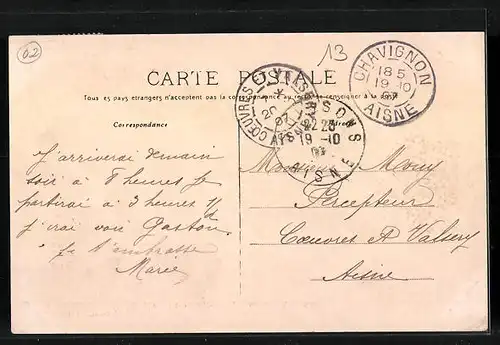 02
13
CARTE POSTALE
Tous pays étrangers n'acceptent pas la correspondance au recto. Se renseigner à la
Correspondance
CHAVIGNON
18 5
19 -10
07
AISNE
COEUVRES-ET-VALSERY
20
07
AISNE
SOISSONS
22 25
19 -10
07
AISNE
J'arriverai demain
soir à 8 heures je
partirai à 3 heures ½
j'irai voir Gaston
je t'embrasse
Marie
Monsieur Mouy
Percepteur
Cœuvres et Valsery
Aisne